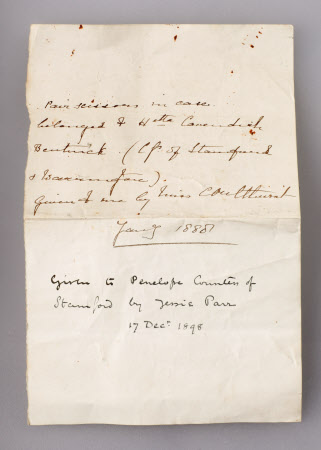 Pair scissors in case
belonged to Htta Cavendish
Bentinck. (Css of Stamford
& Warrington).
Given to me by Miss Coulthurst
Jany 1888
Given to Penelope Countess of
Stamford by Jessie Parr
17 Decr 1898